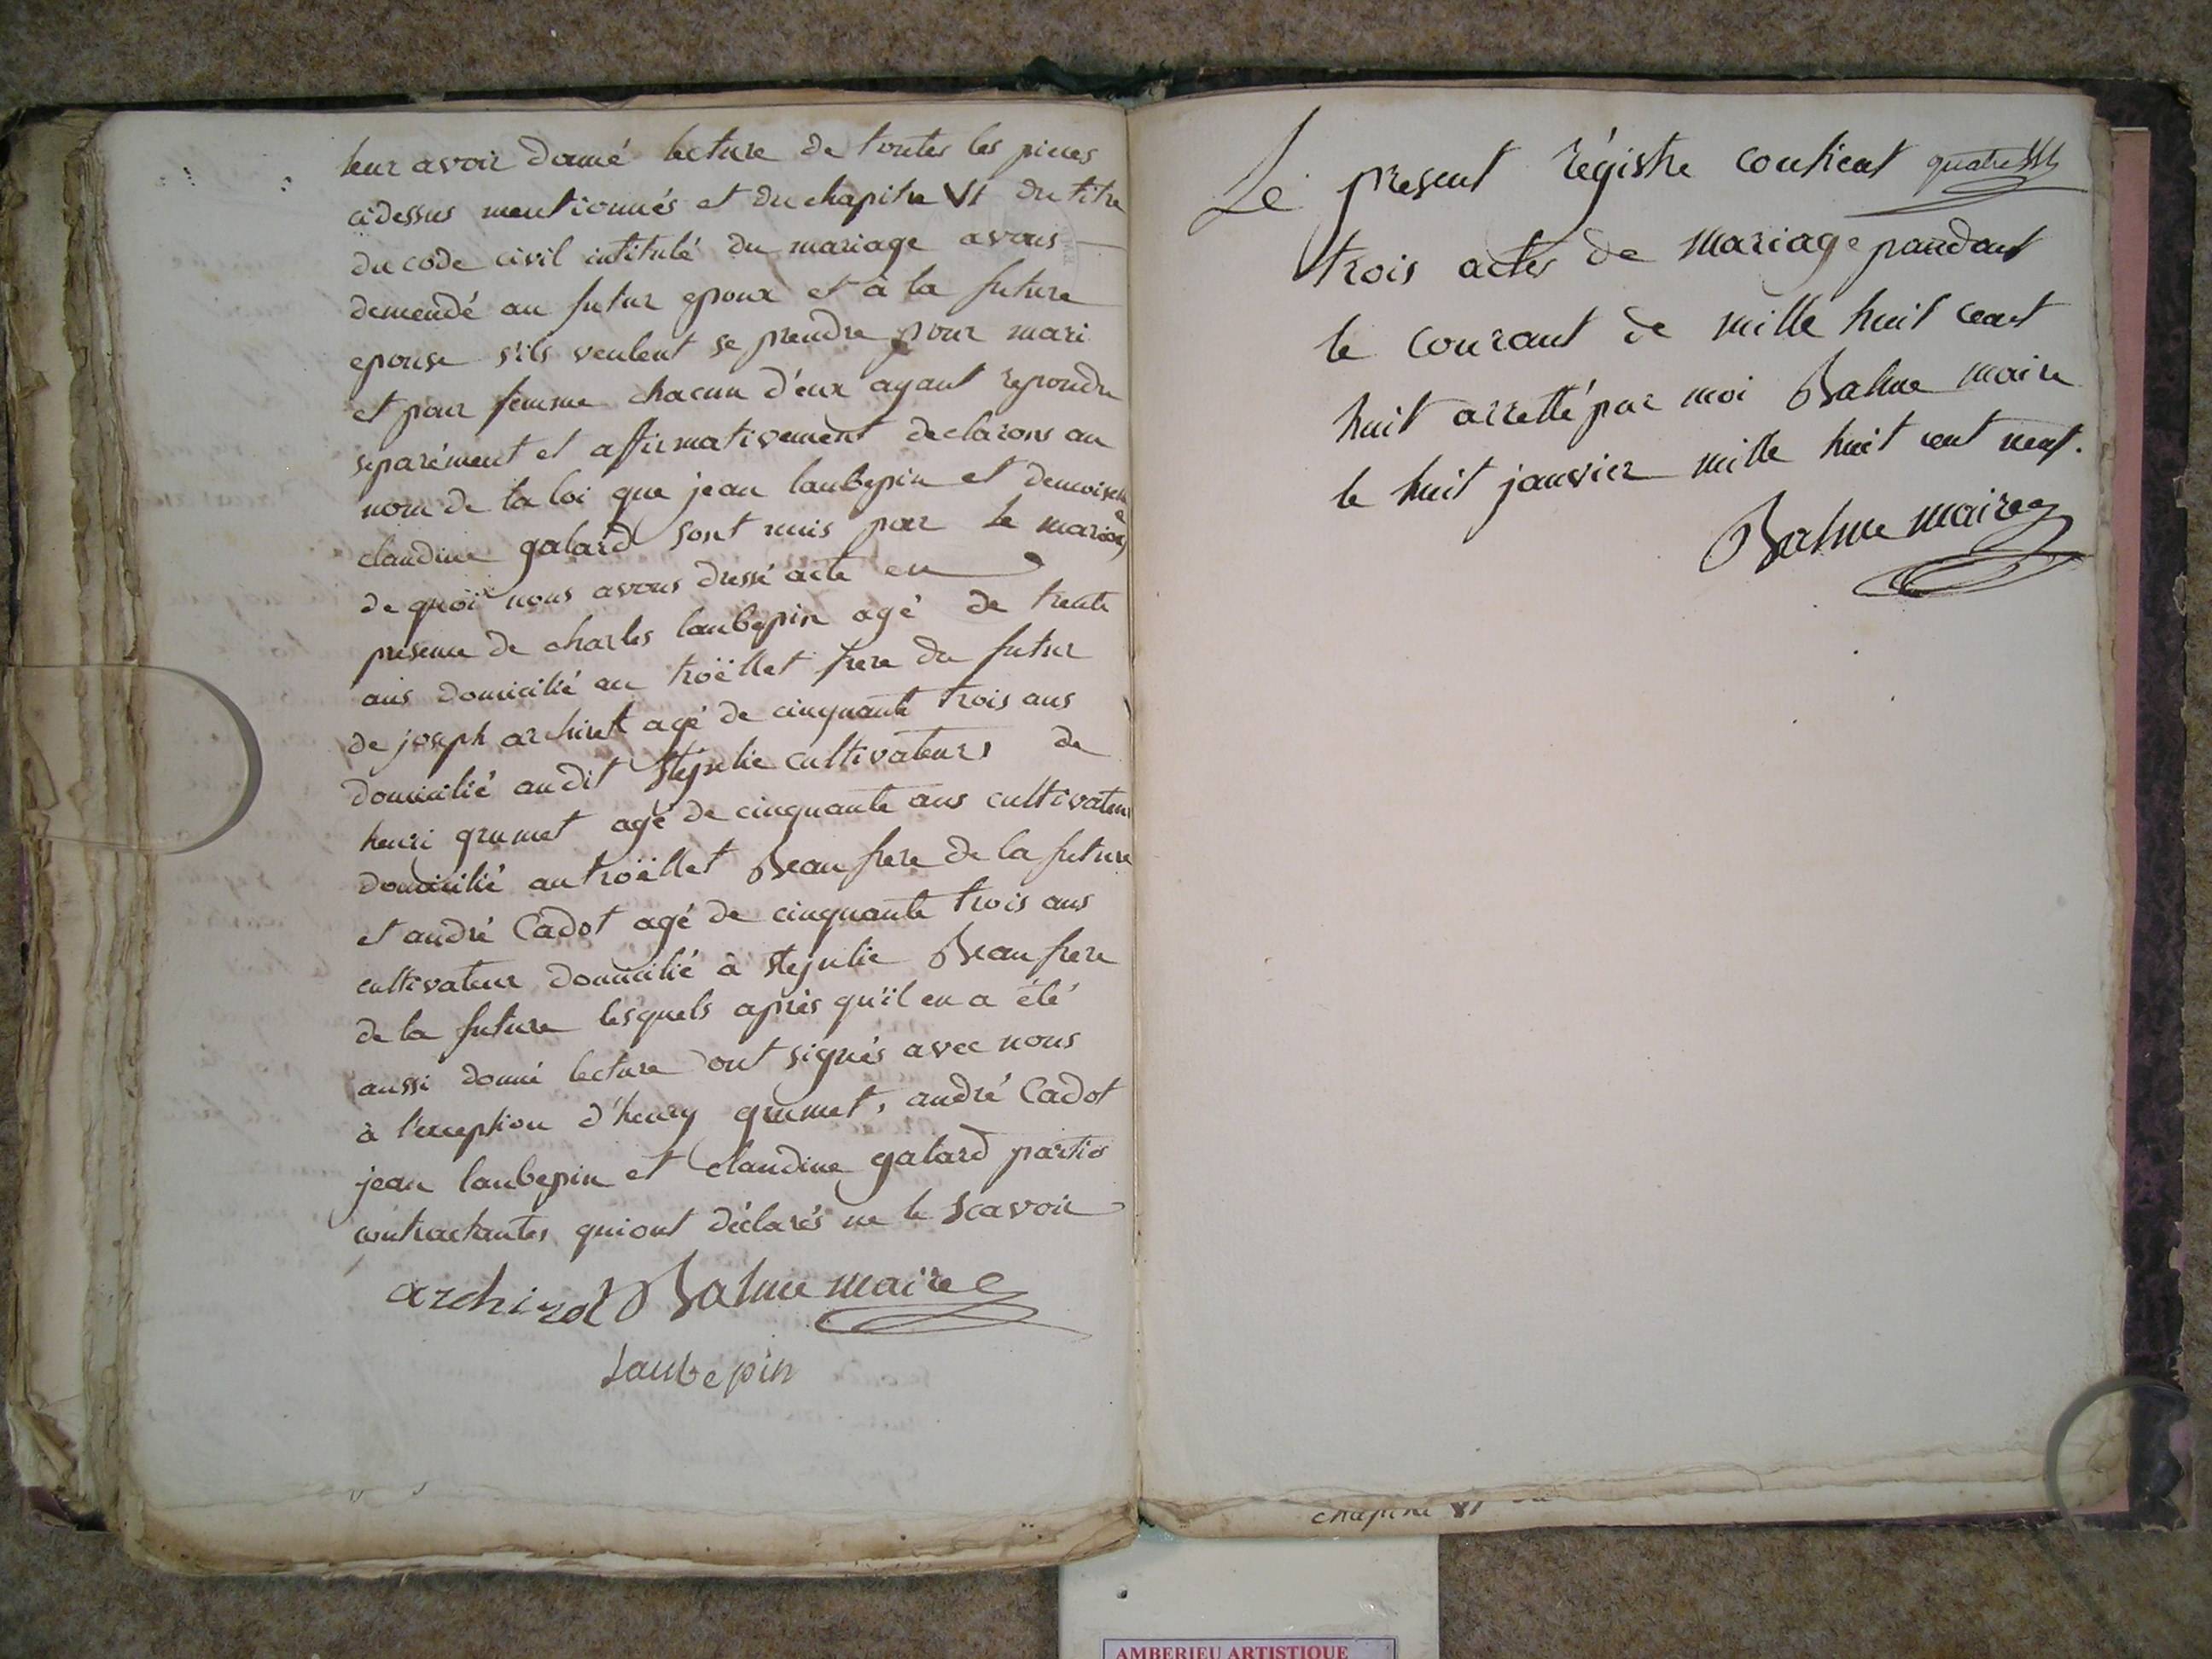 leur avoir donné lecture de toutes les pieces
cidessus mentionnés et du chapitre VI du titre
du code civil intitulé du mariage avons
demendé au futur epoux et à la future
epouse s'ils veulent se prendre pour mari
et pour femme chacun d'eux ayant repondu
separément et affirmativement declarons au
nom de la loi que jean laubepin et demoiselle
claudine galard sont unis par le mariage
de quoi nous avons dressé acte en
presence de charles laubepin agé de trente
ans domicilié en troëllet frere du futur
de joseph archiret agé de cinquante trois ans
domicilié audit stejulie cultivateurs de
henri grumet agé de cinquante ans cultivateur
domicilié au troëllet Beau frere de la future
et andré Cadot agé de cinquante trois ans
cultivateur domicilié à stejulie Beau frere
de la future lesquels après qu'il en a été
aussi donné lecture ont signés avec nous
à l'exception d'henry grumet, andré Cadot
jean laubepin et claudine galard parties
contractantes qui ont déclarés ne le scavoir
archirel Balme maire
Laubepin
Le present régistre contient
trois actes de mariage pandant
le courant de mille huit cent
huit arretté par moi Balme maire
le huit janvier mille huit cent neuf.
Balme maire
chapitre VI
AMBERIEU ARTISTIQUE